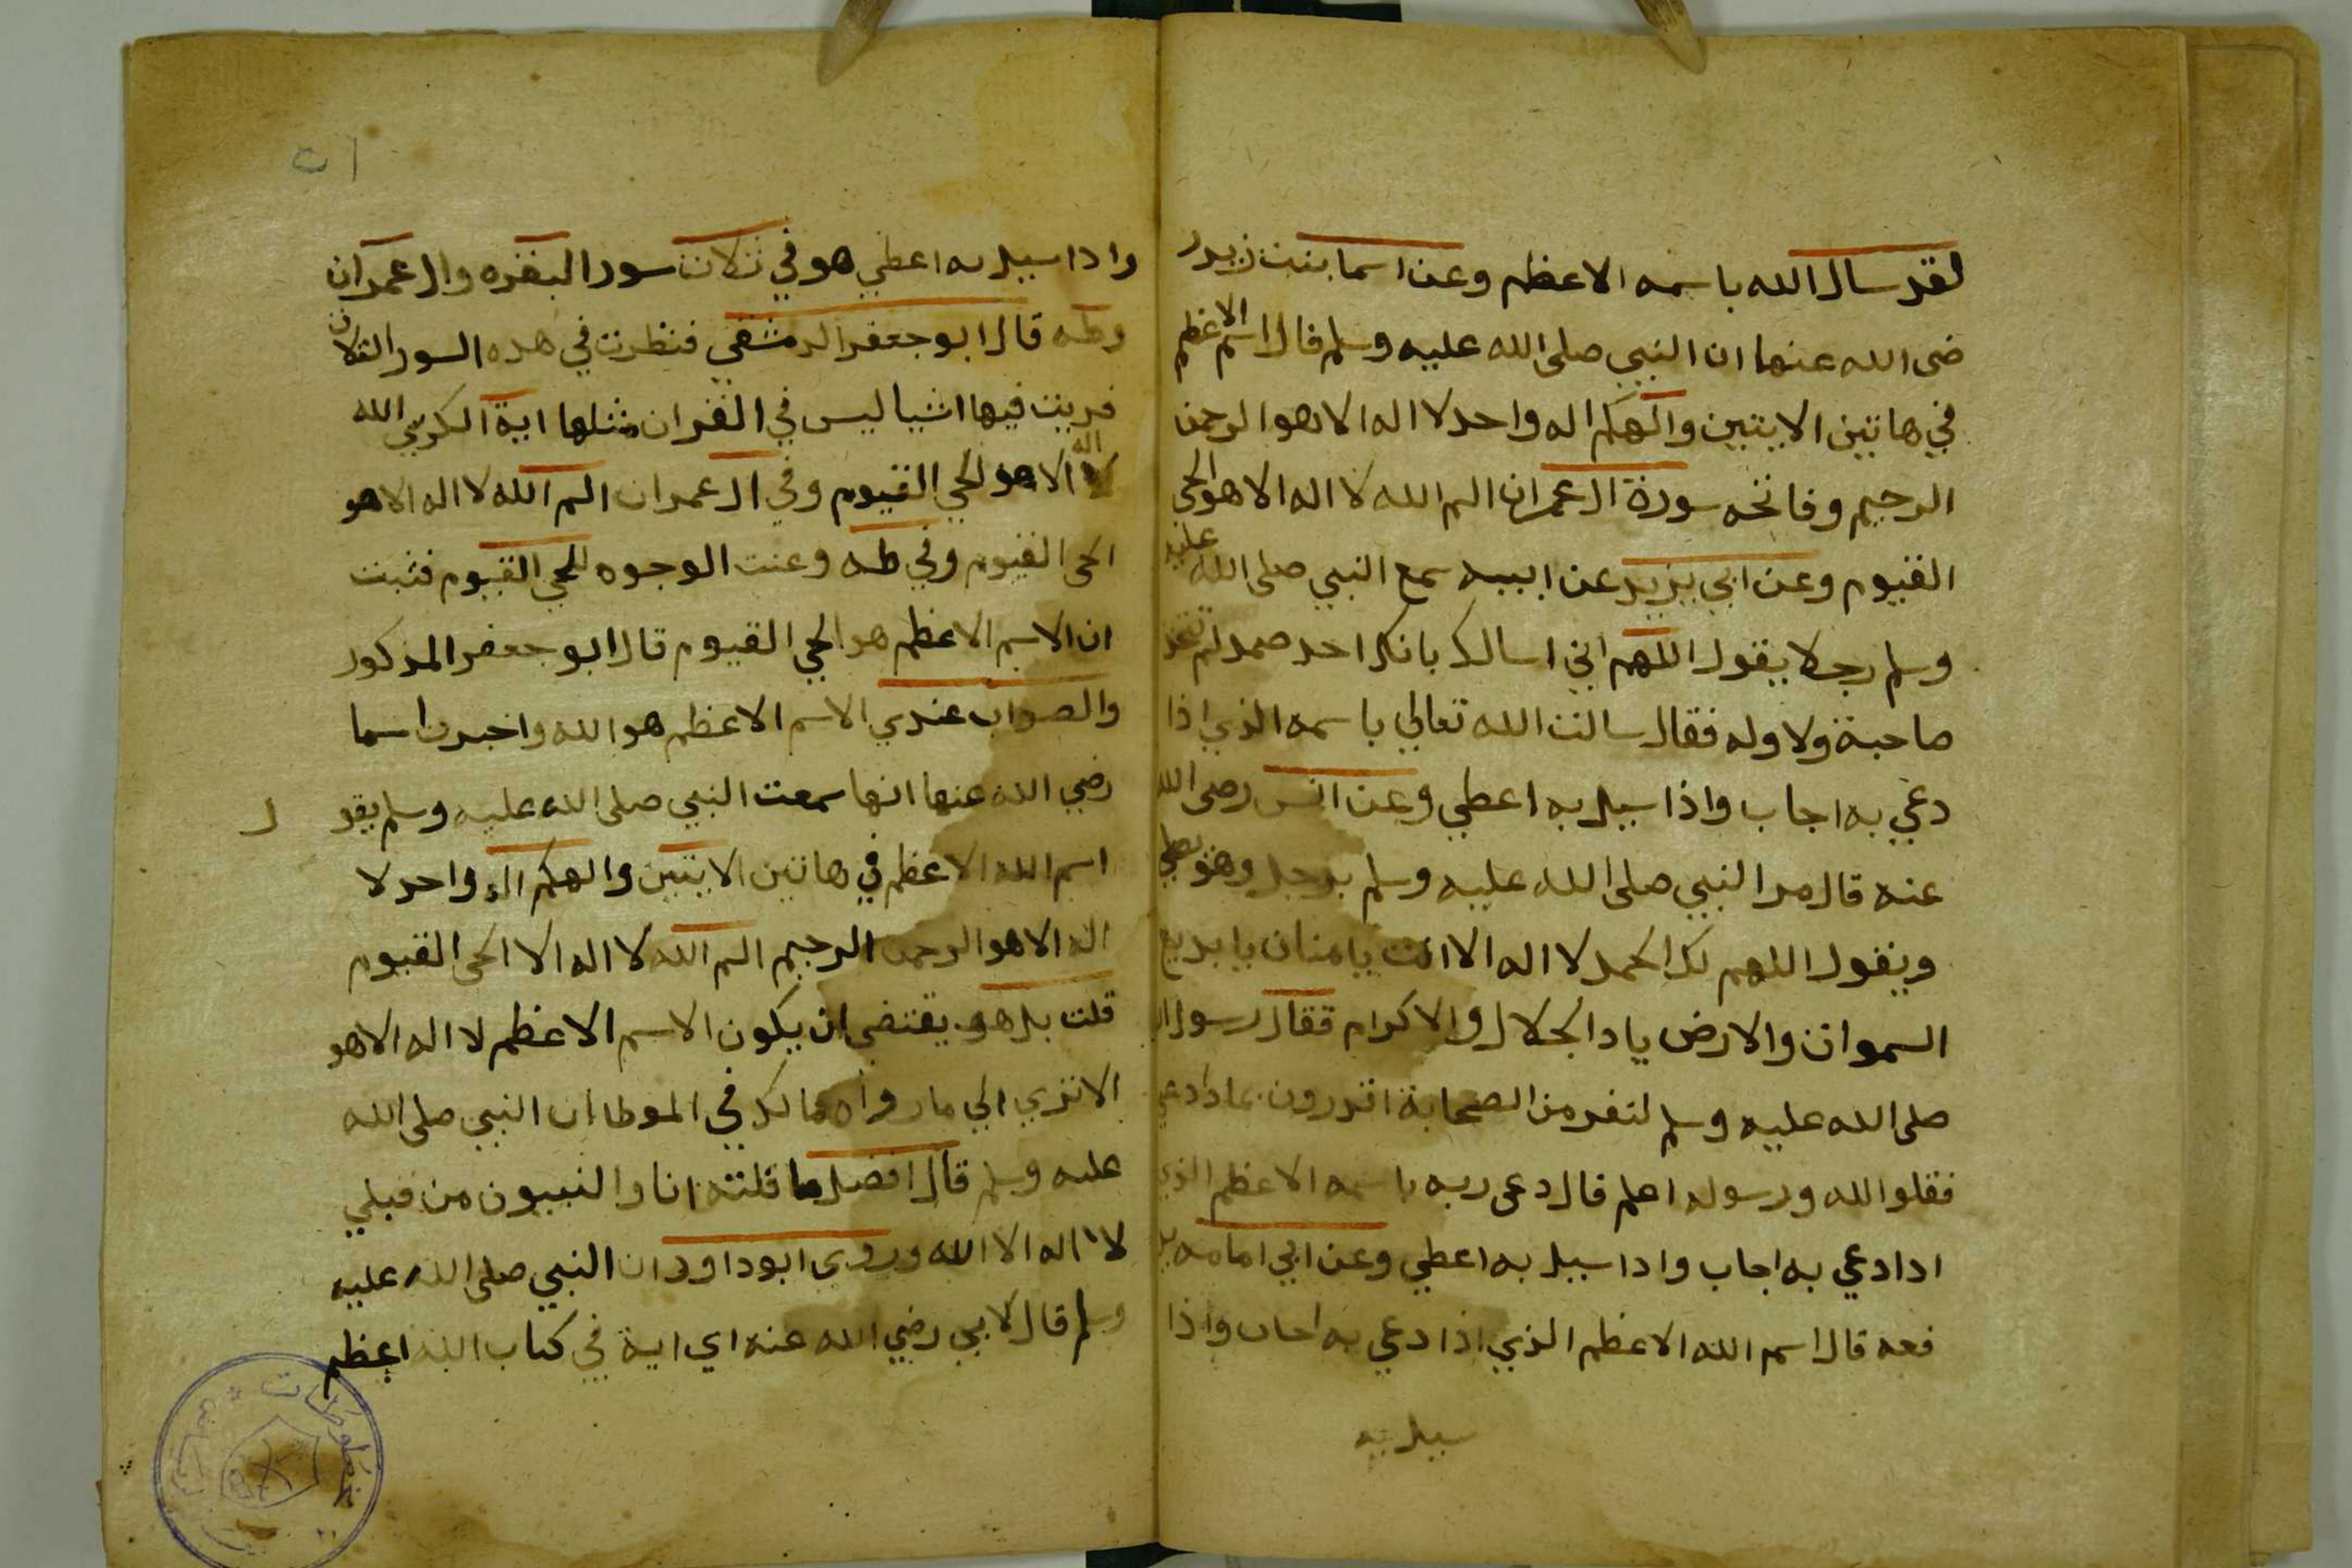 لقد سال الله باسمه الاعظم وعن اسما بنت زيد ر
ضى الله عنها ان النبي صلى الله عليه وسلم قال اسم الاعظم
في هاتين الايتين والهكم اله واحد لا اله الا هو الرحمن
الرحيم وفاتحه سورة ال عمران الم الله لا اله الا هو الحي
القيوم وعن ابي يزيد عن ابيه سمع النبي صلى الله عليه
وسلم رجلا يقول اللهم اني اسالك بانك احد صمد لم تتخذ
صاحبة ولا ولد فقال سالت الله تعالي باسمه الذي اذا
دعي به اجاب واذا سيل به اعطي وعن انس رضى الله
عنه قال مر النبي صلى الله عليه وسلم برجل وهو يصلي
ويقول اللهم لك الحمد لا اله الا انت يا منان يا بديع
السموات والارض يا دا الجلال والاكرام فقال رسول ال
صلى الله عليه وسلم لنفر من الصحابة اتدرون بما دا دعي
فقلو الله ورسوله اعلم قال دعى ربه باسمه الاعظم الذي
ادا دعي به اجاب وادا سيل به اعطي وعن ابي امامه ير
فعه قال اسم الله الاعظم الذي اذا دعي به اجاب واذا
سيل به
وادا سيل به اعطي هو في ثلاث سور البقره وال عمران
وطه قال ابو جعفر الدمشقي فنظرت في هده السور الثلاث
فريت فيها اشيا ليس في القران مثلها اية الكرسي الله
لا اله الا هو الحي القيوم وفي ال عمران الم الله لا اله الا هو
الحى القيوم وفي طه وعنت الوجوه للحي القيوم فثبت
ان الاسم الاعظم هو الحي القيوم قال ابو جعفر المذكور
والصواب عندي الاسم الاعظم هو الله واخبرت اسما
رضي الله عنها انها سمعت النبي صلى الله عليه وسلم يقو ل
اسم الله الاعظم في هاتين الايتين والهكم اله واحد لا
اله الا هو الرحمن الرحيم الم الله لا اله الا الحى القيوم
قلت بل هو يقتضي ان يكون الاسم الاعظم لا اله الا هو
الا تري الي ما رواه مالك في الموطا ان النبي صلى الله
عليه وسلم قال افضل ما قلته انا والنبيون من قبلي
لا اله الا الله وروي ابو داود ان النبي صلى الله عليه
وسلم قال لابي رضي الله عنه اي اية في كتاب الله اعظم